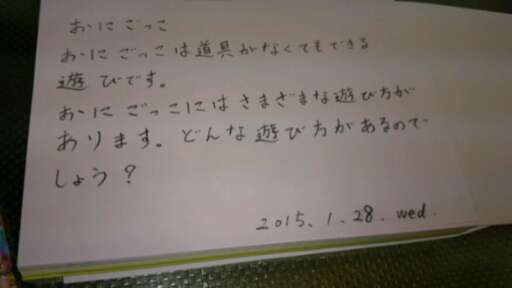 おにごっこ
おにごっこは道具がなくてもできる
遊びです。
おにごっこにはさまざまな遊び方が
あります。どんな遊び方があるので
しょう?
2015.1.28.wed.